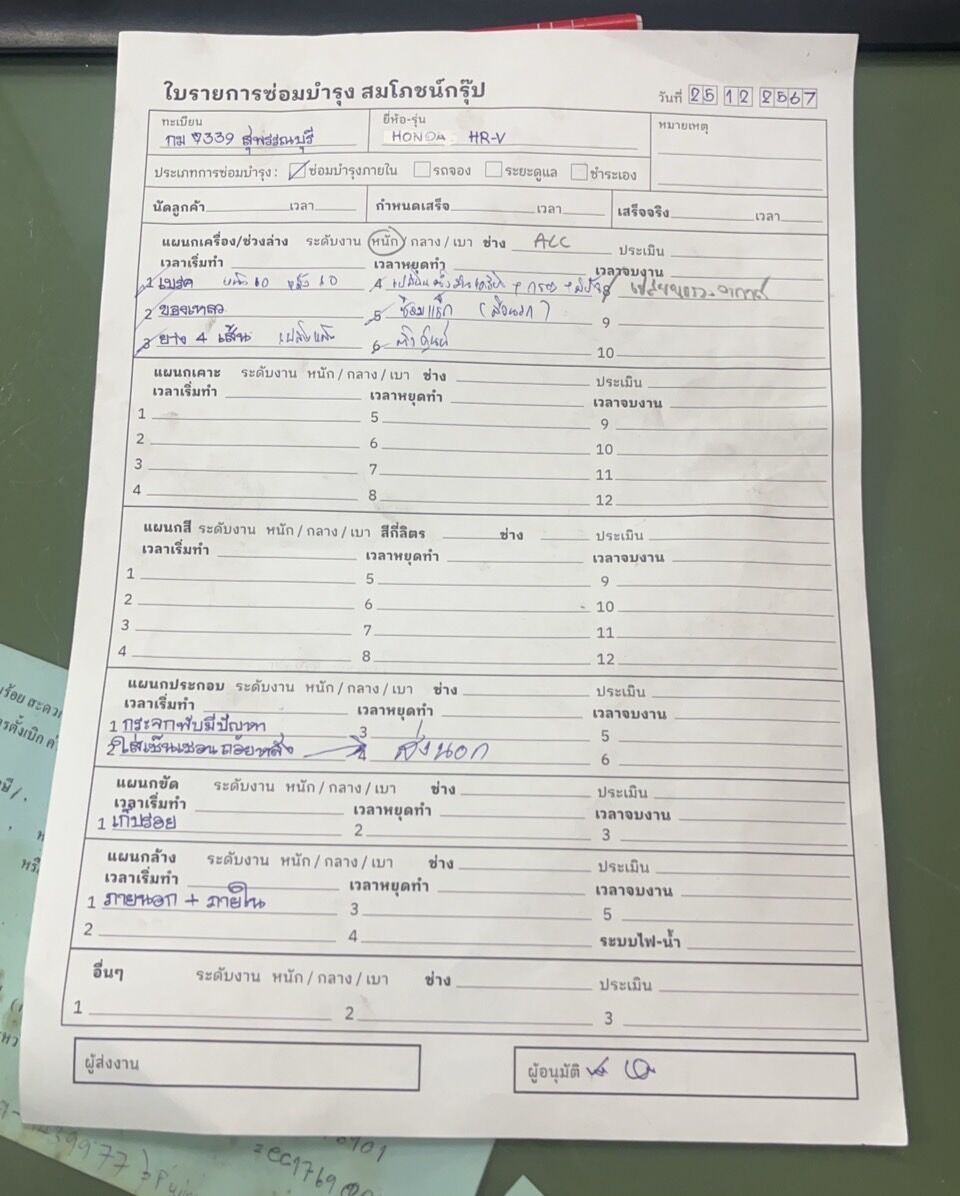 ใบรายการซ่อมบำรุง สมโภชน์กรุ๊ป
วันที่ 25 12 2567
ทะเบียน
กม 9339 สุพรรณบุรี
ยี่ห้อ-รุ่น
HONDA HR-V
หมายเหตุ
ประเภทการซ่อมบำรุง : ซ่อมบำรุงภายใน รถจอง ระยะดูแล ชำระเอง
นัดลูกค้า เวลา กำหนดเสร็จ เวลา เสร็จจริง เวลา
แผนกเครื่อง/ช่วงล่าง ระดับงาน หนัก / กลาง / เบา ช่าง ACC ประเมิน
เวลาเริ่มทำ เวลาหยุดทำ เวลาจบงาน
1 เบรค หน้า 60 หลัง 60 4 8
2 ของเหลว 5 ซ่อมแร็ก 9
3 ยาง 4 เส้น 6 10
แผนกเคาะ ระดับงาน หนัก / กลาง / เบา ช่าง ประเมิน
เวลาเริ่มทำ เวลาหยุดทำ เวลาจบงาน
1 5 9
2 6 10
3 7 11
4 8 12
แผนกสี ระดับงาน หนัก / กลาง / เบา สีกี่ลิตร ช่าง ประเมิน
เวลาเริ่มทำ เวลาหยุดทำ เวลาจบงาน
1 5 9
2 6 10
3 7 11
4 8 12
แผนกประกอบ ระดับงาน หนัก / กลาง / เบา ช่าง ประเมิน
เวลาเริ่มทำ เวลาหยุดทำ เวลาจบงาน
1 กระจกพับมีปัญหา 3 5
2 ใส่เซ็นเซอนถอยหลัง 4 ส่งนอก 6
แผนกขัด ระดับงาน หนัก / กลาง / เบา ช่าง ประเมิน
เวลาเริ่มทำ เวลาหยุดทำ เวลาจบงาน
1 เก็บร่อย 2 3
แผนกล้าง ระดับงาน หนัก / กลาง / เบา ช่าง ประเมิน
เวลาเริ่มทำ เวลาหยุดทำ เวลาจบงาน
1 ภายนอก + ภายใน 3 5
2 4 ระบบไฟ-น้ำ
อื่นๆ ระดับงาน หนัก / กลาง / เบา ช่าง ประเมิน
1 2 3
ผู้ส่งงาน
ผู้อนุมัติ